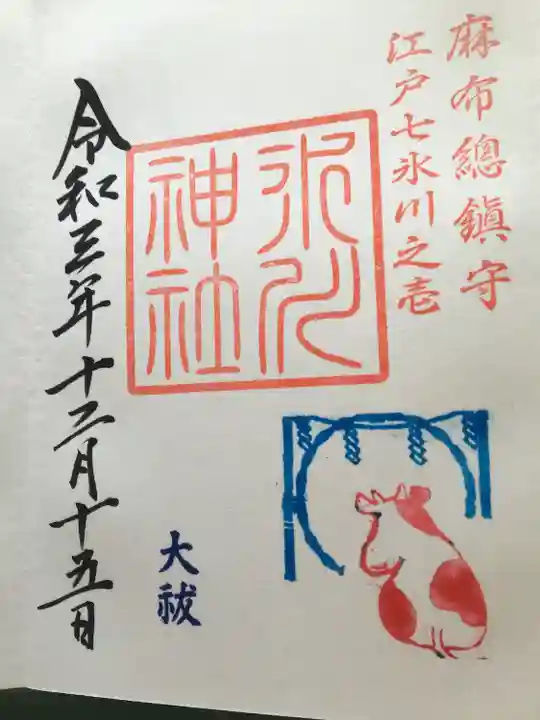 麻布總鎮守
江戸七氷川之壱
氷川
神社
大祓
令和三年十二月十五日